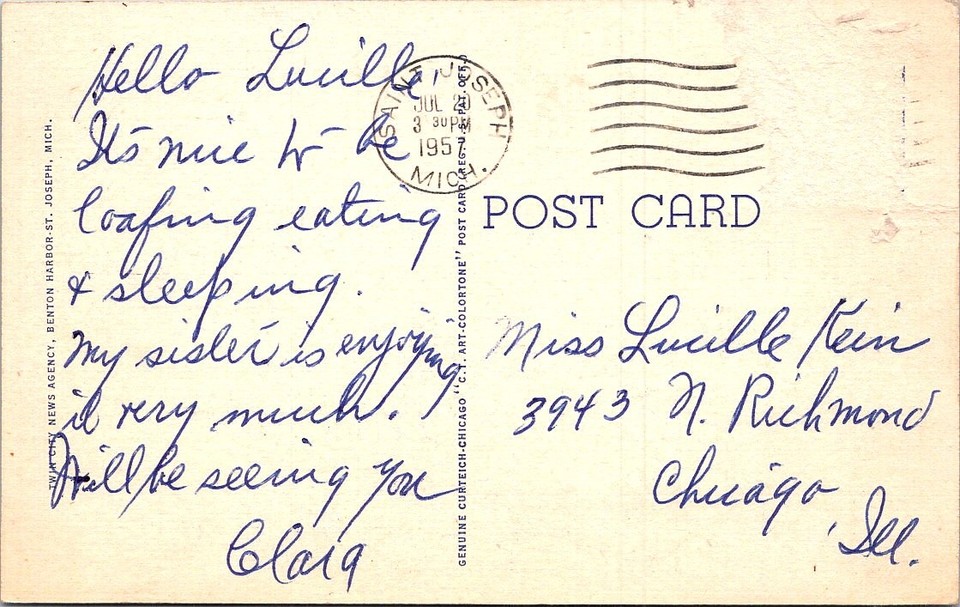 Hello Lucille,
It's nice to be
loafing eating
& sleeping.
My sister is enjoying
it very much.
Will be seeing you
Clara
SAINT JOSEPH
JUL 2
3 30 PM
1957
MICH.
POST CARD
Miss Lucille Kein
3943 N. Richmond
Chicago
Ill.
TWIN CITY NEWS AGENCY, BENTON HARBOR-ST. JOSEPH, MICH.
GENUINE CURTEICH-CHICAGO "C.T. ART-COLORTONE" POST CARD (REG. U.S. PAT. OFF.)